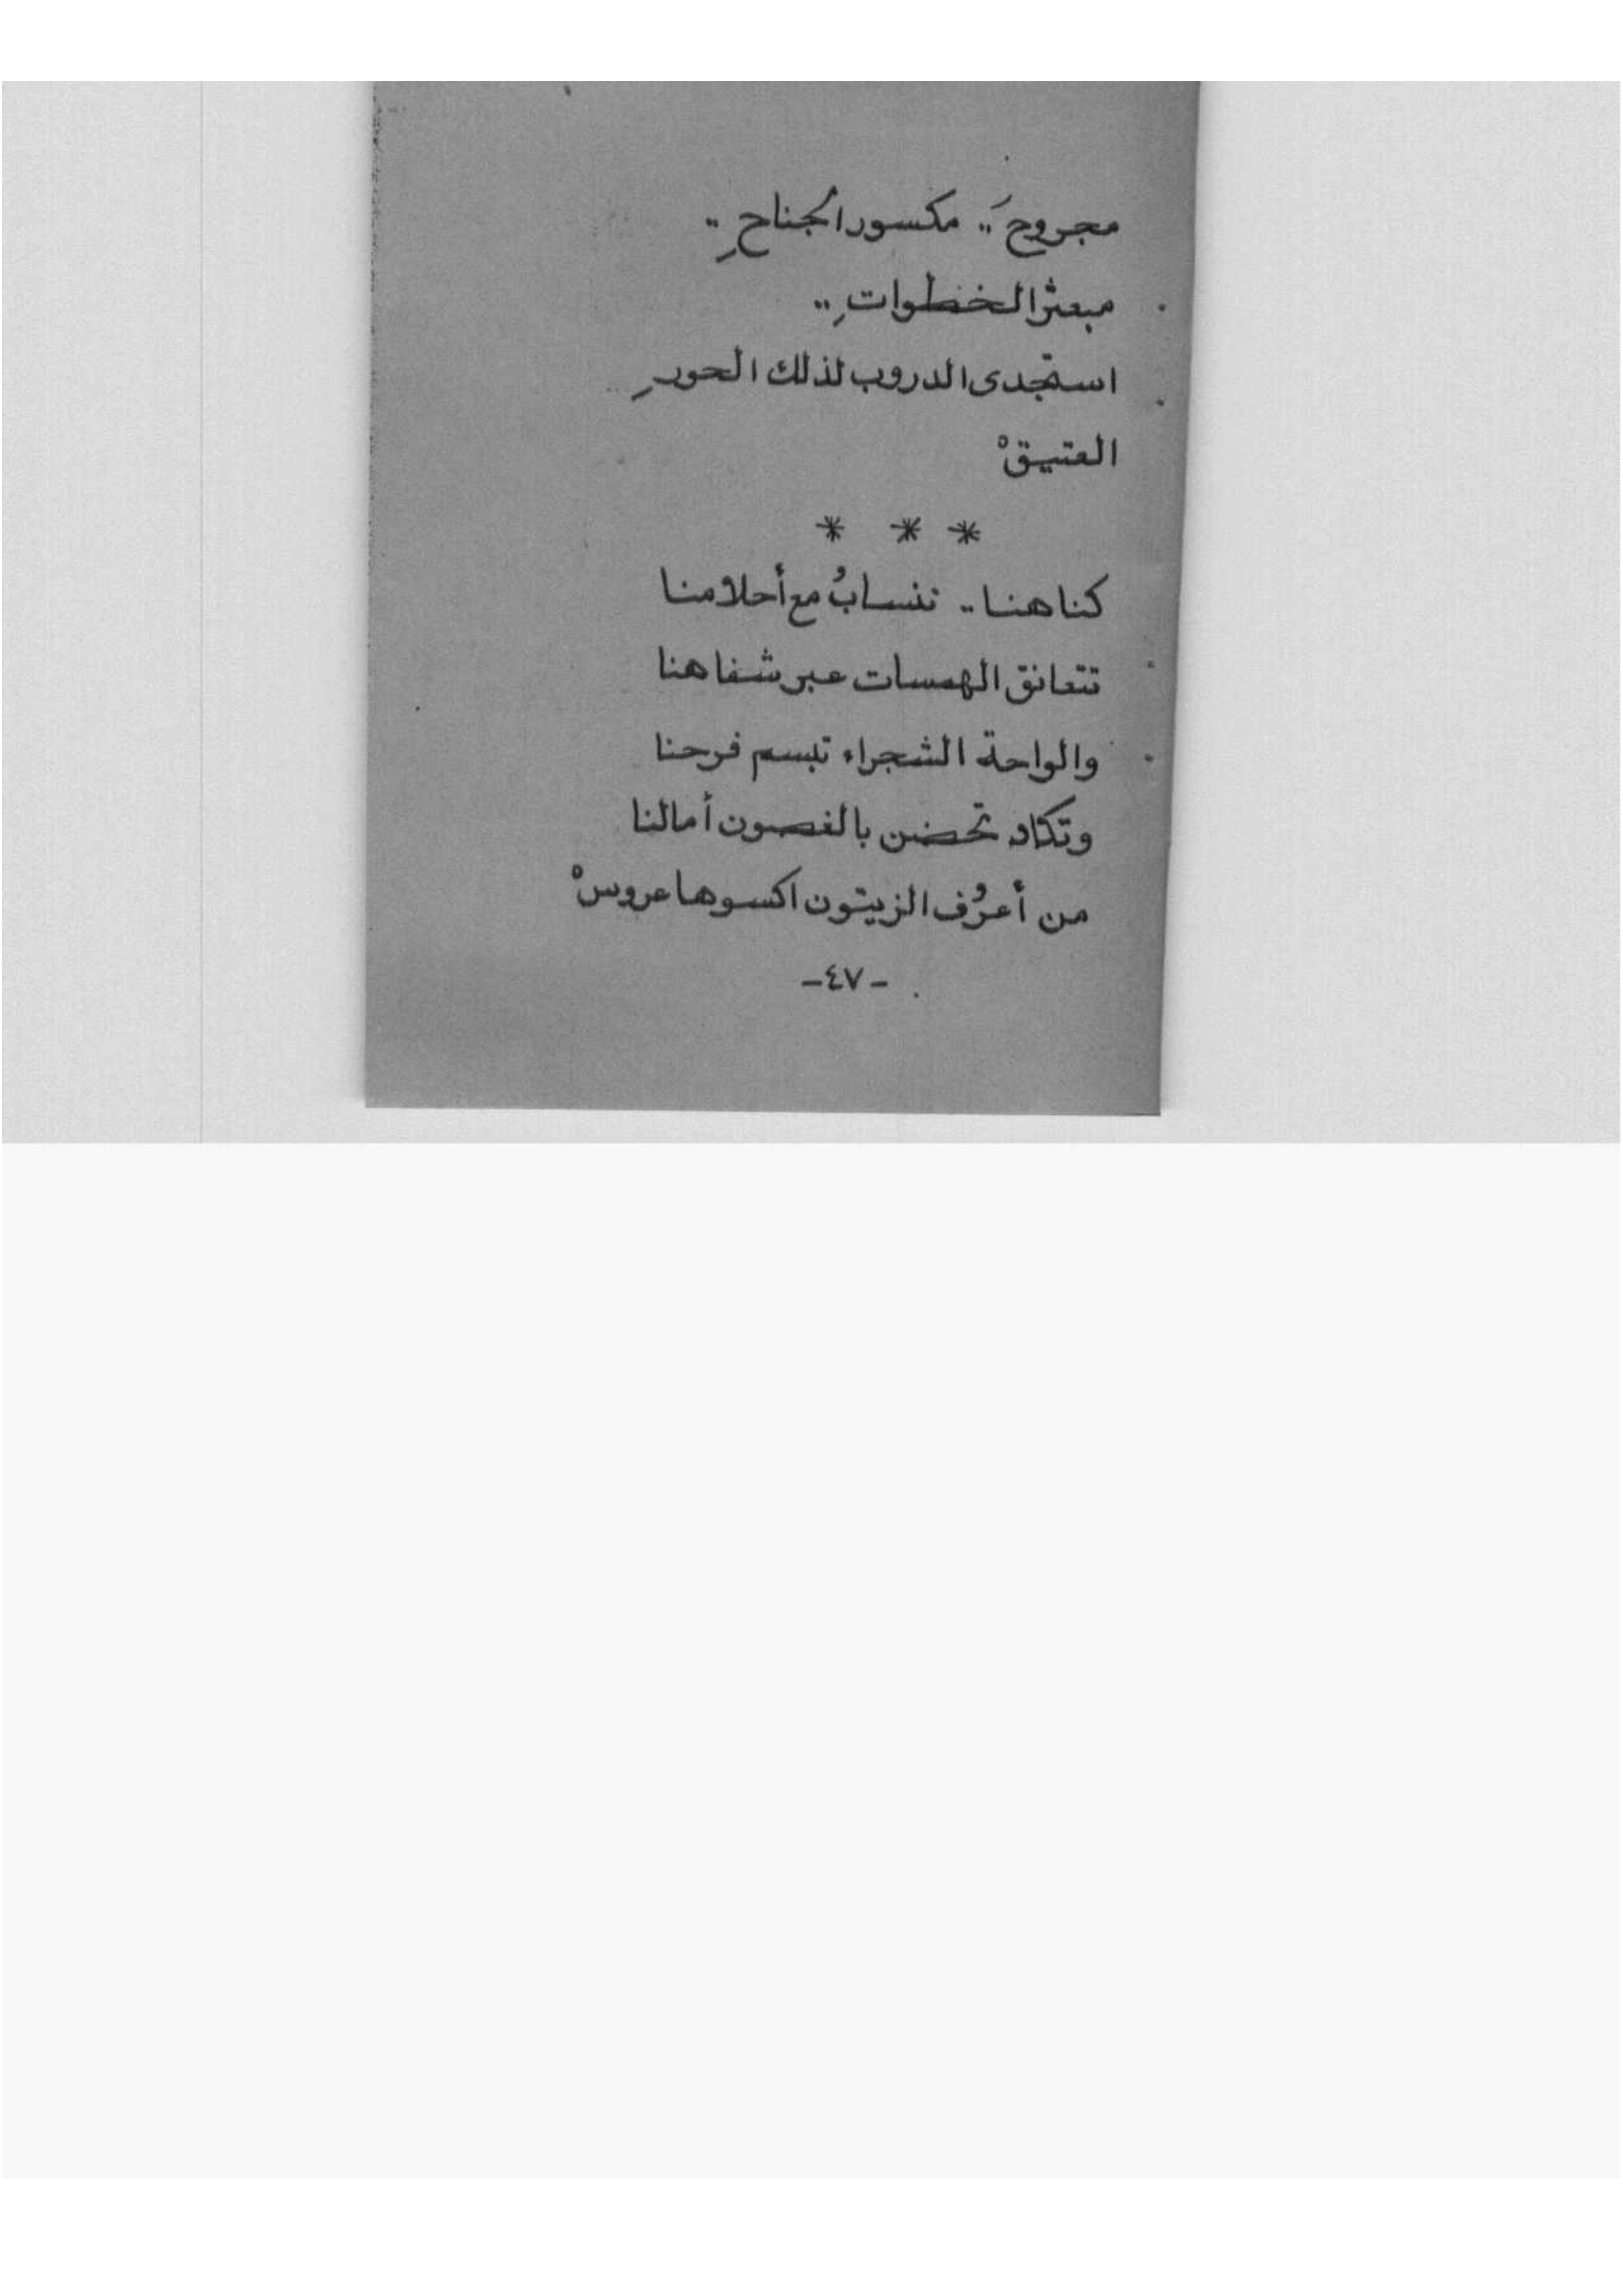 مجروحَ .. مكسور الجناحِ ..
مبعثر الخطواتِ ..
استجدى الدروب لذلك الحورِ
العتيقْ
* * *
كنا هنا .. ننسابُ مع أحلامنا
تتعانق الهمسات عبر شفاهنا
والواحة الشجراء تبسم فرحنا
وتكاد تحضن بالغصون أمالنا
من أعرُف الزيتون اكسوها عروسْ
- ٤٧ -